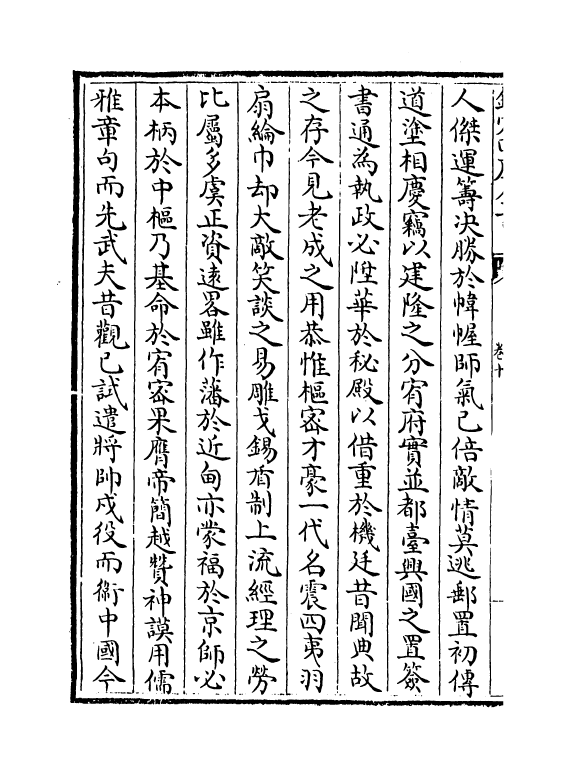 人傑運籌决勝於幃幄師氣已倍敵情莫逃郵置初傳
道塗相慶竊以建隆之分宥府實並都臺興國之置簽
書通為執政必陞華於秘殿以借重於機廷昔聞典故
之存今見老成之用恭惟樞宻才豪一代名震四夷羽
扇綸巾却大敵笑談之易雕戈錫盾制上流經理之勞
比屬多虞正資逺畧雖作藩於近甸亦蒙福於京師必
本柄於中樞乃基命於宥宻果膺帝簡越贊神謨用儒
雅章句而先武夫昔觀已試遣將帥戍役而衛中國今
卷十